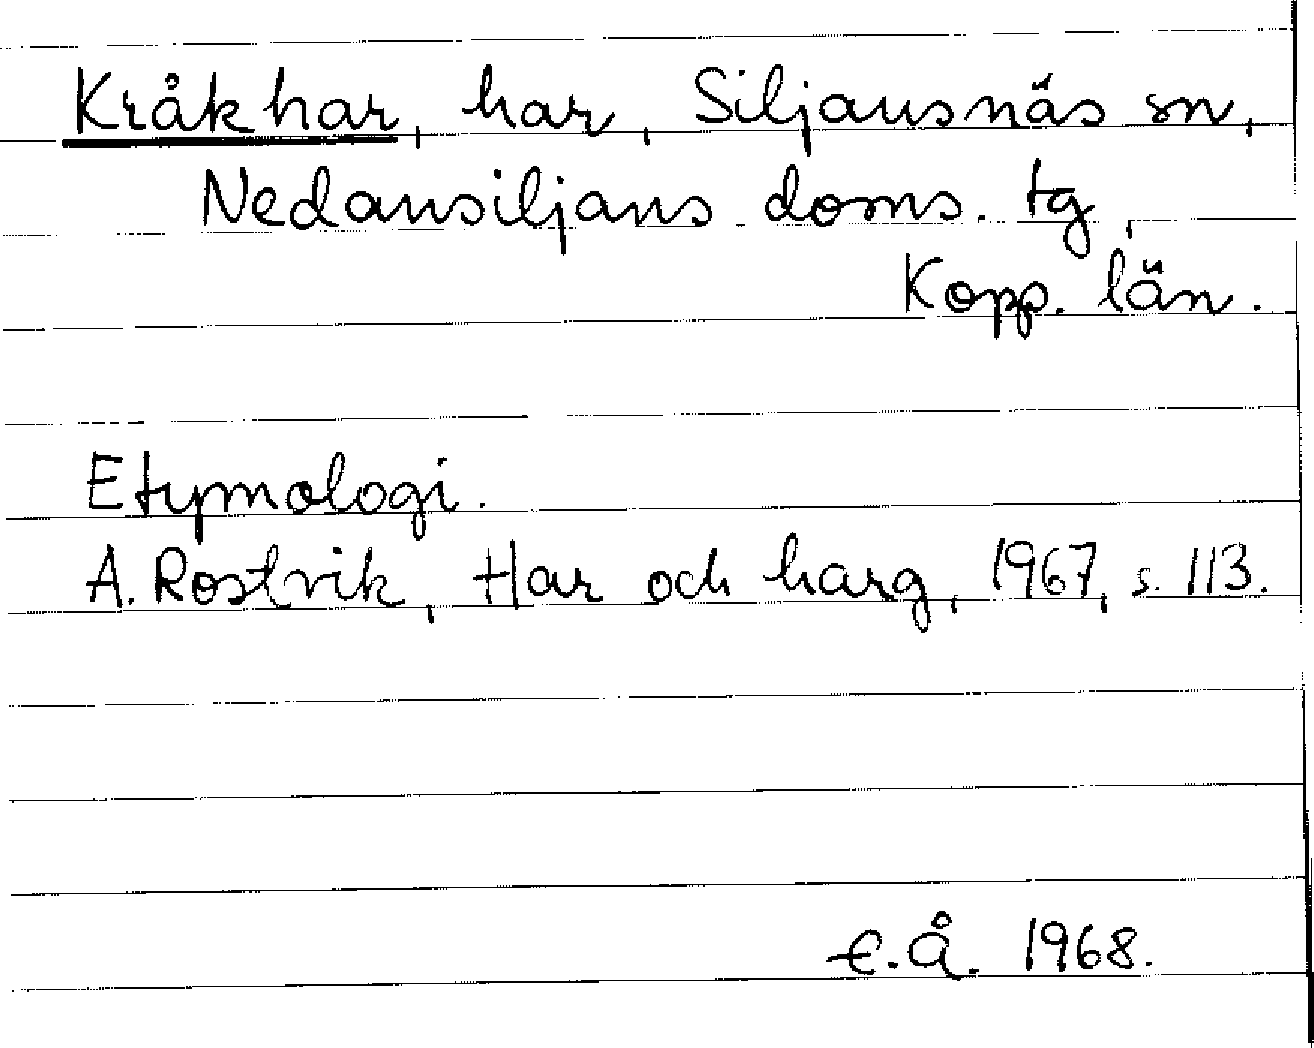 Kråkhar, har, Siljansnäs sn,
Nedansiljans doms. tg,
Kopp. län.
Etymologi.
A. Rostvik, Har och harg, 1967, s. 113.
E.Å. 1968.